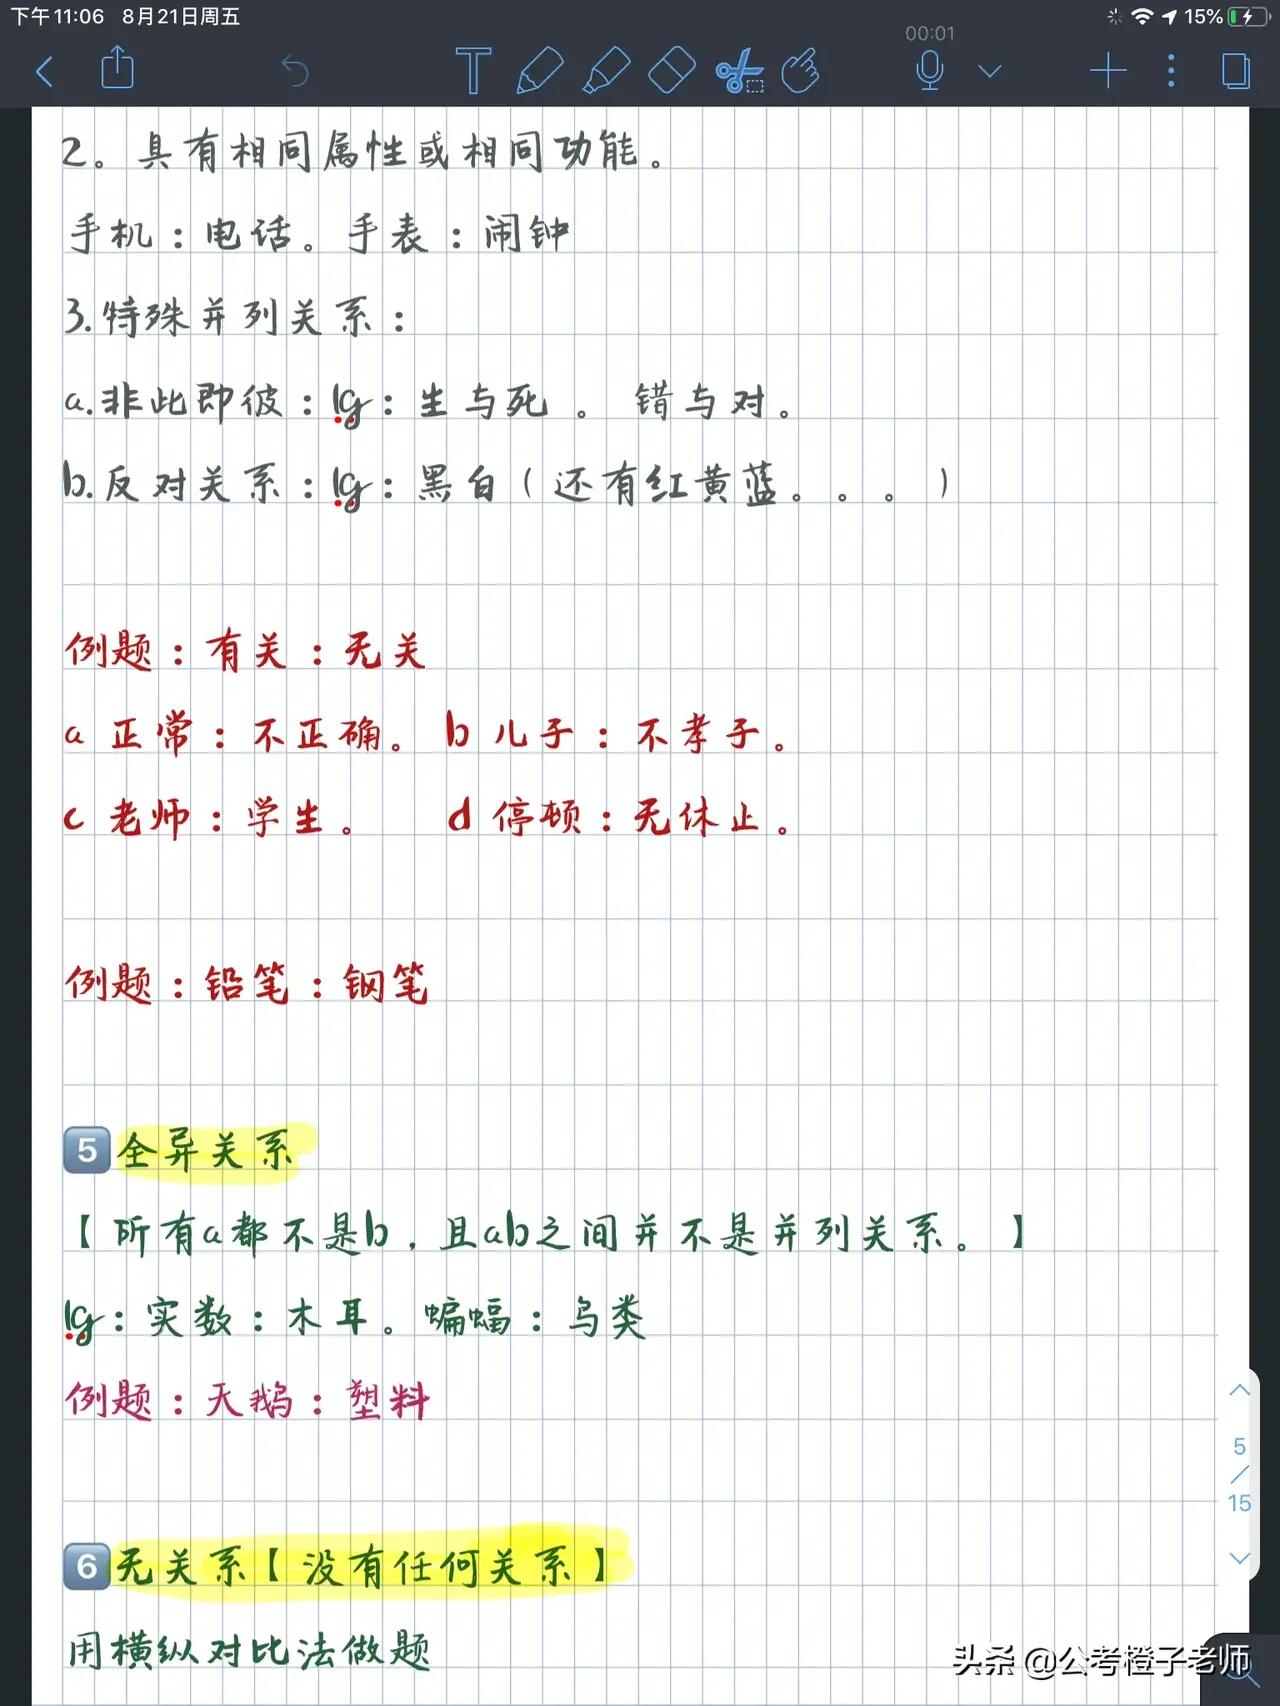 下午11:06 8月21日周五
15%
00:01
2。具有相同属性或相同功能。
手机：电话。手表：闹钟
3.特殊并列关系：
a.非此即彼：lg：生与死。 错与对。
b.反对关系：lg：黑白（还有红黄蓝。。。）
例题：有关：无关
a 正常：不正确。 b 儿子：不孝子。
c 老师：学生。 d 停顿：无休止。
例题：铅笔：钢笔
5 全异关系
【所有a都不是b，且ab之间并不是并列关系。】
lg：实数：木耳。蝙蝠：鸟类
例题：天鹅：塑料
5
/
15
6 无关系【没有任何关系】
用横纵对比法做题
头条 @公考橙子老师